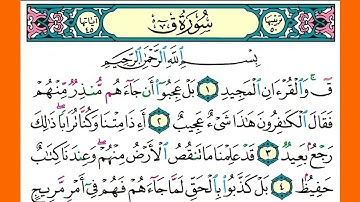 سُورَةُ قٓ
بِسْمِ ٱللَّهِ ٱلرَّحْمَٰنِ ٱلرَّحِيمِ
قٓ ۚ وَٱلْقُرْءَانِ ٱلْمَجِيدِ ١ بَلْ عَجِبُوٓا۟ أَن جَآءَهُم مُّنذِرٌ مِّنْهُمْ
فَقَالَ ٱلْكَٰفِرُونَ هَٰذَا شَىْءٌ عَجِيبٌ ٢ أَءِذَا مِتْنَا وَكُنَّا تُرَابًا ۖ ذَٰلِكَ
رَجْعٌۢ بَعِيدٌ ٣ قَدْ عَلِمْنَا مَا تَنقُصُ ٱلْأَرْضُ مِنْهُمْ ۖ وَعِندَنَا كِتَٰبٌ
حَفِيظٌۢ ٤ بَلْ كَذَّبُوا۟ بِٱلْحَقِّ لَمَّا جَآءَهُمْ فَهُمْ فِىٓ أَمْرٍ مَّرِيجٍ